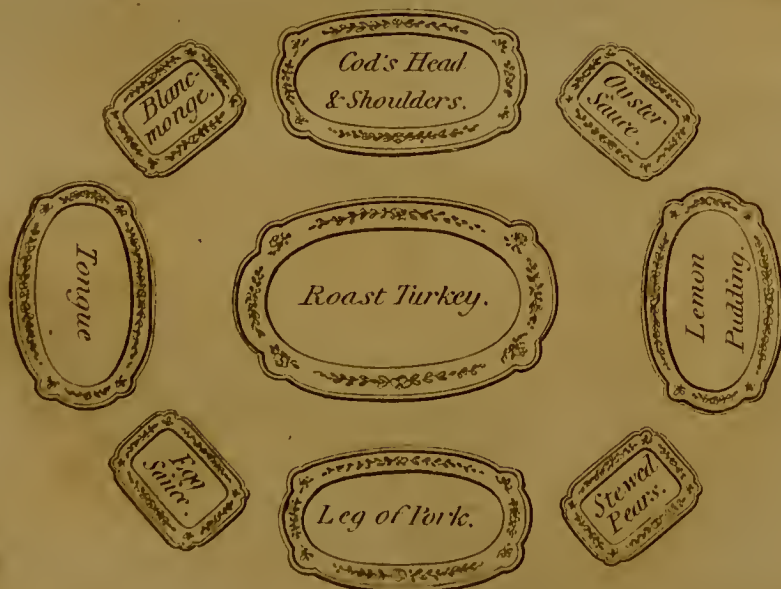 Blanc-
monge.
Cod's Head
& Shoulders.
Oyster
Sauce.
Tongue
Roast Turkey.
Lemon
Pudding.
Egg
Sauce.
Leg of Pork.
Stewed
Pears.